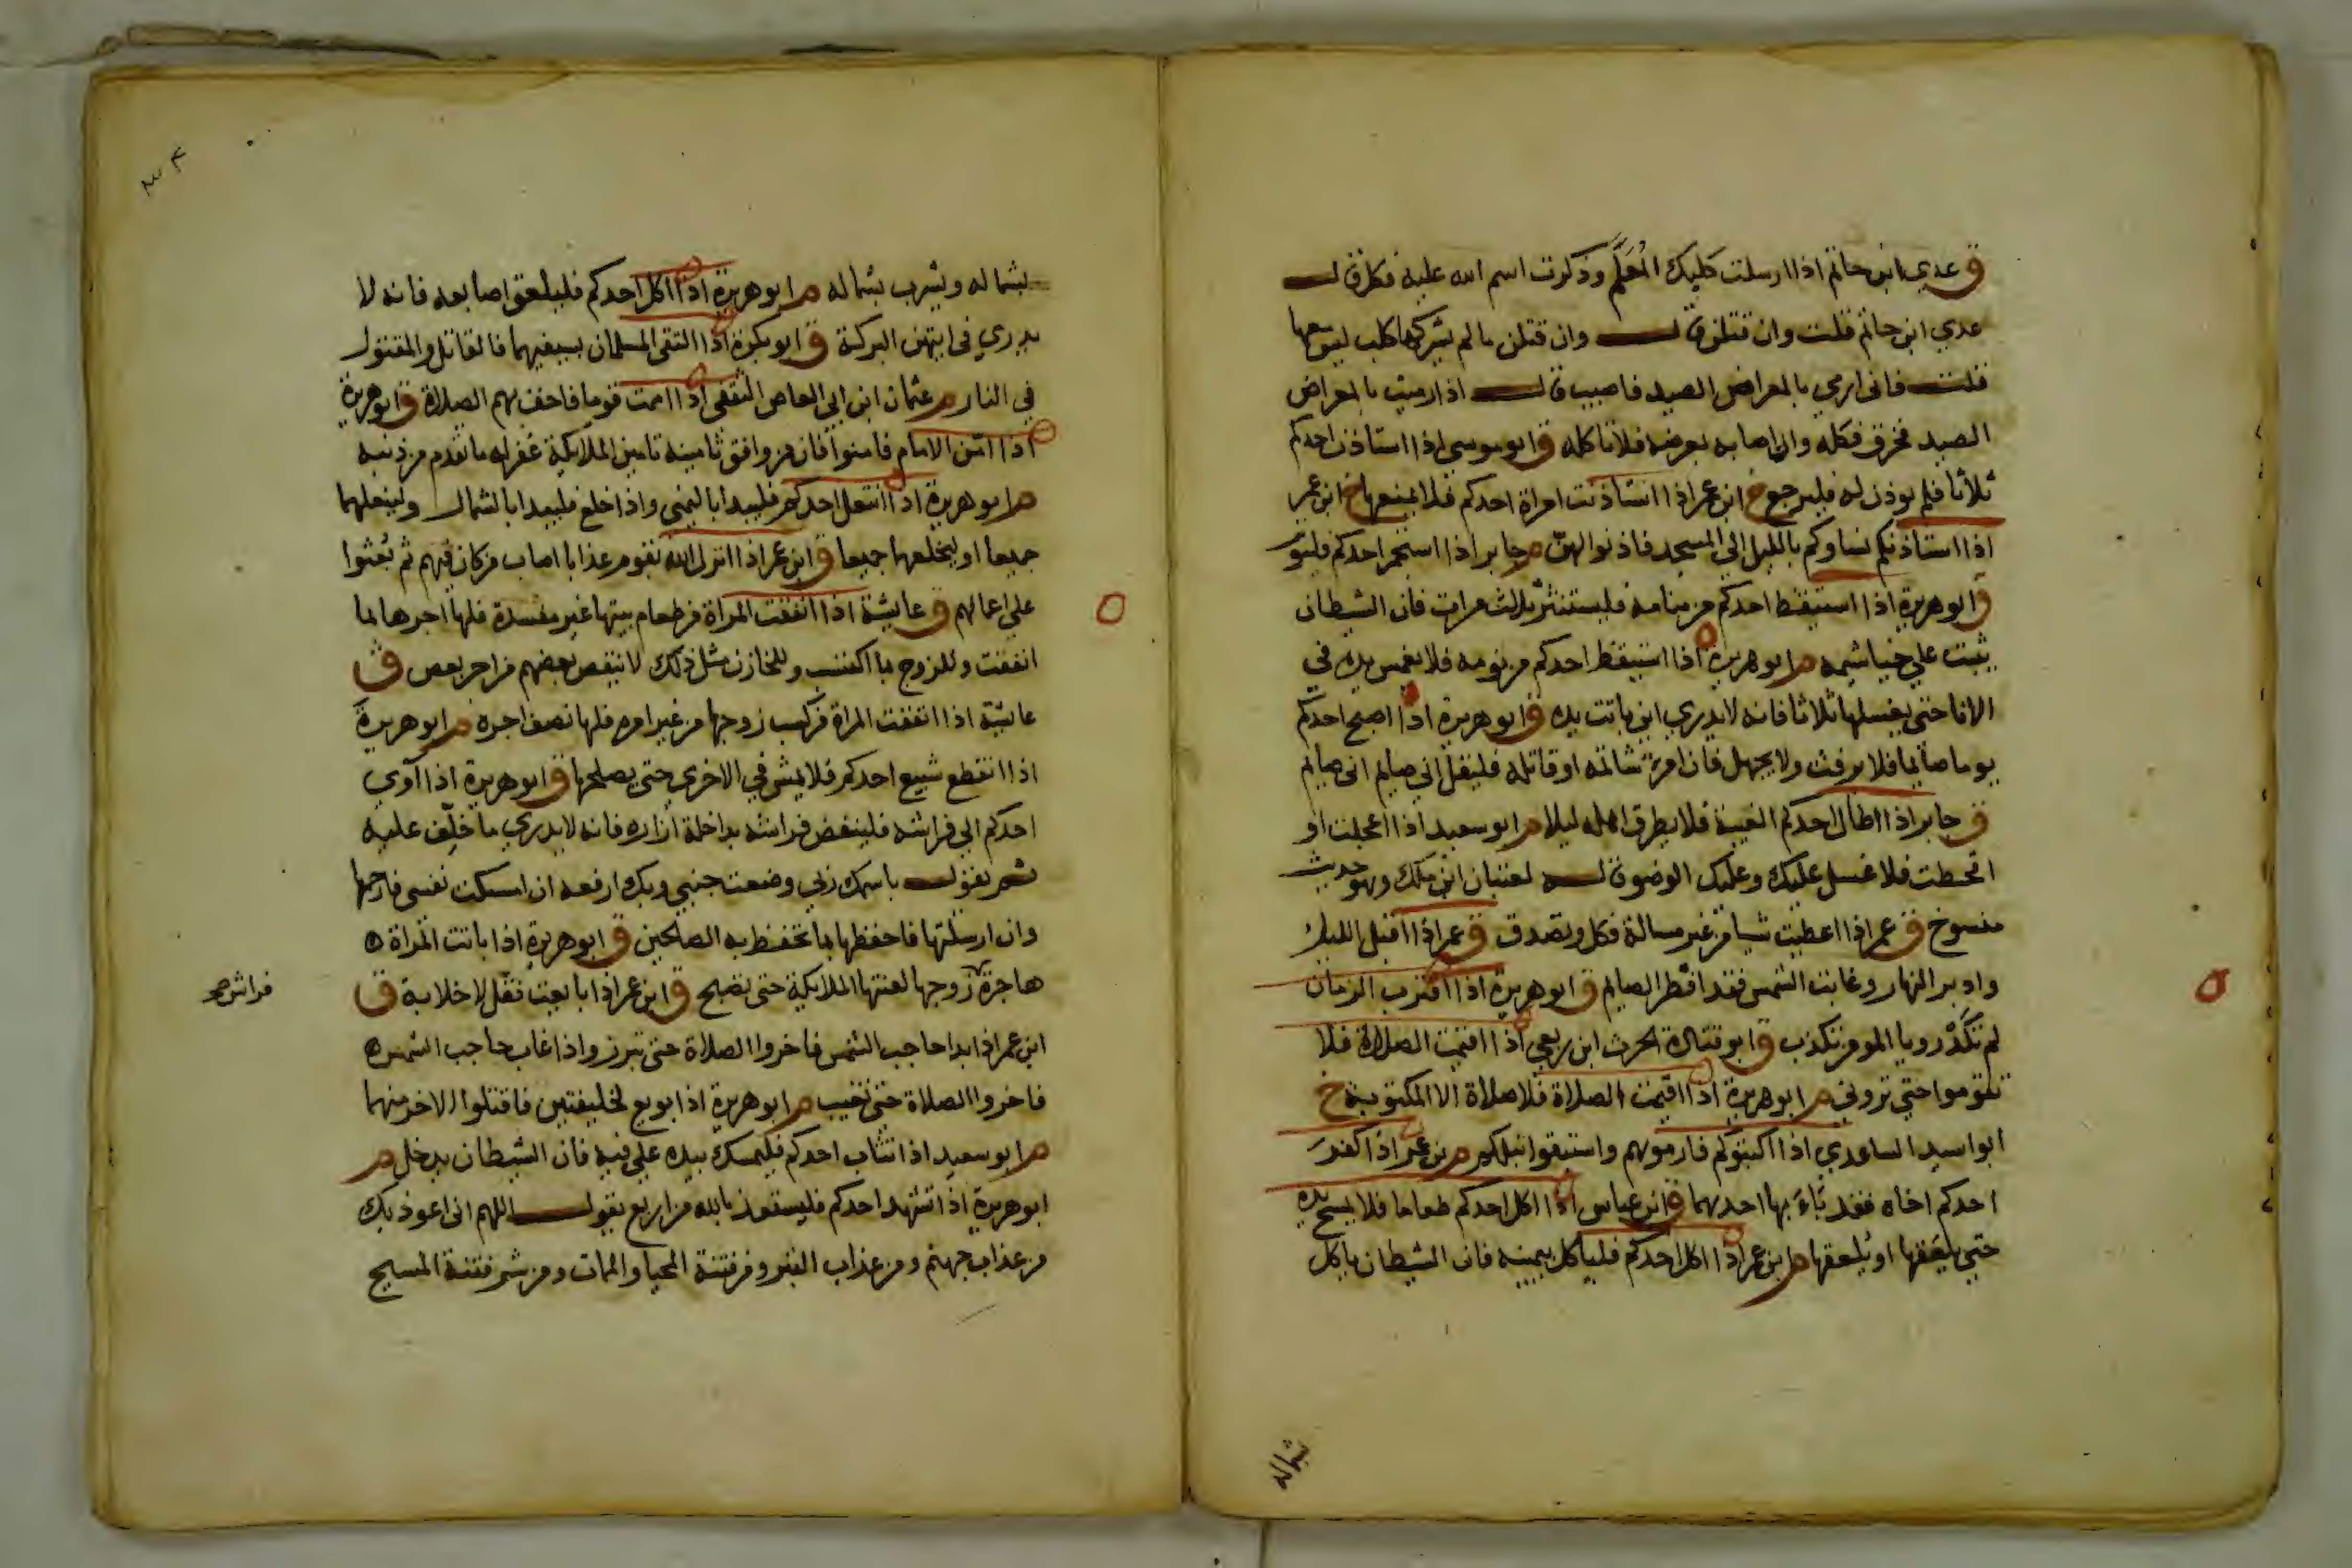 ق عدي ابن حاتم اذا ارسلت كلبك المُعَلَّم وذكرت اسم الله عليه فكل قال
عدي ابن حاتم قلت وان قتلن قال وان قتلن ما لم يشركها كلب ليس معها
قلت فاني ارمي بالمعراض الصيد فاصيب قال اذا رميت بالمعراض
الصيد فخرق فكله وان اصابه بعرضه فلا تاكله ق ابو موسى اذا استاذن احدكم
ثلاثا فلم يوذن له فليرجع خ ابن عمر اذا استاذنت امراة احدكم فلا يمنعها خ ابن عمر
اذا استاذنكم نساوكم بالليل الي المسجد فاذنوا لهن م جابر اذا استجمر احدكم فليوتر
ق ابو هريرة اذا استيقظ احدكم من منامه فليستنثر ثلاث مرات فان الشيطان
يبيت علي خياشيمه م ابو هريرة اذا استيقظ احدكم من نومه فلا يغمس يده في
الانا حتى يغسلها ثلاثا فانه لا يدري اين باتت يده ق ابو هريرة اذا اصبح احدكم
يوما صايما فلا يرفث ولا يجهل فان امرؤ شاتمه او قاتله فليقل اني صايم اني صايم
ق جابر اذا اطال احدكم الغيبة فلا يطرق اهله ليلا م ابو سعيد اذا اعجلت او
اقحطت فلا غسل عليك وعليك الوضو قاله لعتبان ابن ملك وهو حديث
منسوخ ق عمر اذا اعطيت شيا من غير مسالة فكل وتصدق ق عمر اذا اقبل الليل
وادبر النهار وغابت الشمس فقد افطر الصايم ق ابو هريرة اذا اقترب الزمان
لم تكد رويا المومن تكذب ق ابو قتادة الحرث ابن ربعي اذا اقيمت الصلاة فلا
تقوموا حتى تروني م ابو هريرة اذا اقيمت الصلاة فلا صلاة الا المكتوبة خ
ابو اسيد الساعدي اذا اكثبوكم فارموهم واستبقوا نبلكم م بن عمر اذا اكفر
احدكم اخاه فقد باء بها احدهما ق ابن عباس اذا اكل احدكم طعاما فلا يمسح يده
حتى يلعقها او يُلعقها م ابن عمر اذا اكل احدكم فلياكل بيمينه فان الشيطان ياكل
بشماله
بشماله ويشرب بشماله م ابو هريرة اذا اكل احدكم فليلعق اصابعه فانه لا
يدري في ايتهن البركة ق ابو بكرة اذا التقى المسلمان بسيفيهما فالقاتل والمقتول
في النار م عثمان ابن ابي العاص الثقفي اذا اممت قوما فاخف بهم الصلاة ق ابو هريرة
اذا امّن الامام فامنوا فان من وافق تامينه تامين الملايكة غفر له ما تقدم من ذنبه
م ابو هريرة اذا انتعل احدكم فليبدا باليمنى واذا خلع فليبدا بالشمال ولينعلهما
جميعا او ليخلعهما جميعا ق ابن عمر اذا انزل الله بقوم عذابا اصاب من كان فيهم ثم بُعثوا
علي اعمالهم ق عايشة اذا انفقت المراة من طعام بيتها غير مفسدة فلها اجرها بما
انفقت وللزوج بما اكتسب وللخازن مثل ذلك لا ينقص بعضهم من اجر بعض ق
عايشة اذا انفقت المراة من كسب زوجها من غير امره فلها نصف اجره م ابو هريرة
اذا انقطع شسع احدكم فلا يمش في الاخري حتى يصلحها ق ابو هريرة اذا آوى
احدكم الي فراشه فلينفض فراشه بداخلة ازاره فانه لا يدري ما خلّف عليه
ثم يقول باسمك ربي وضعت جنبي وبك ارفعه ان امسكت نفسي فارحمها
وان ارسلتها فاحفظها بما تحفظ به الصالحين ق ابو هريرة اذا باتت المراة ه
هاجرة زوجها لعنتها الملايكة حتى تصبح ق ابن عمر اذا بايعت فقل لا خلابة ق
فراش صح
ابن عمر اذا بدا حاجب الشمس فاخروا الصلاة حتى تبرز واذا غاب حاجب الشمس ه
فاخروا الصلاة حتى تغيب م ابو هريرة اذا بويع لخليفتين فاقتلوا الاخر منهما
م ابو سعيد اذا تثاب احدكم فليمسك بيده علي فيه فان الشيطان يدخل م
ابو هريرة اذا تشهد احدكم فليستعذ بالله من اربع يقول اللهم اني اعوذ بك
من عذاب جهنم ومن عذاب القبر ومن فتنة المحيا والممات ومن شر فتنة المسيح